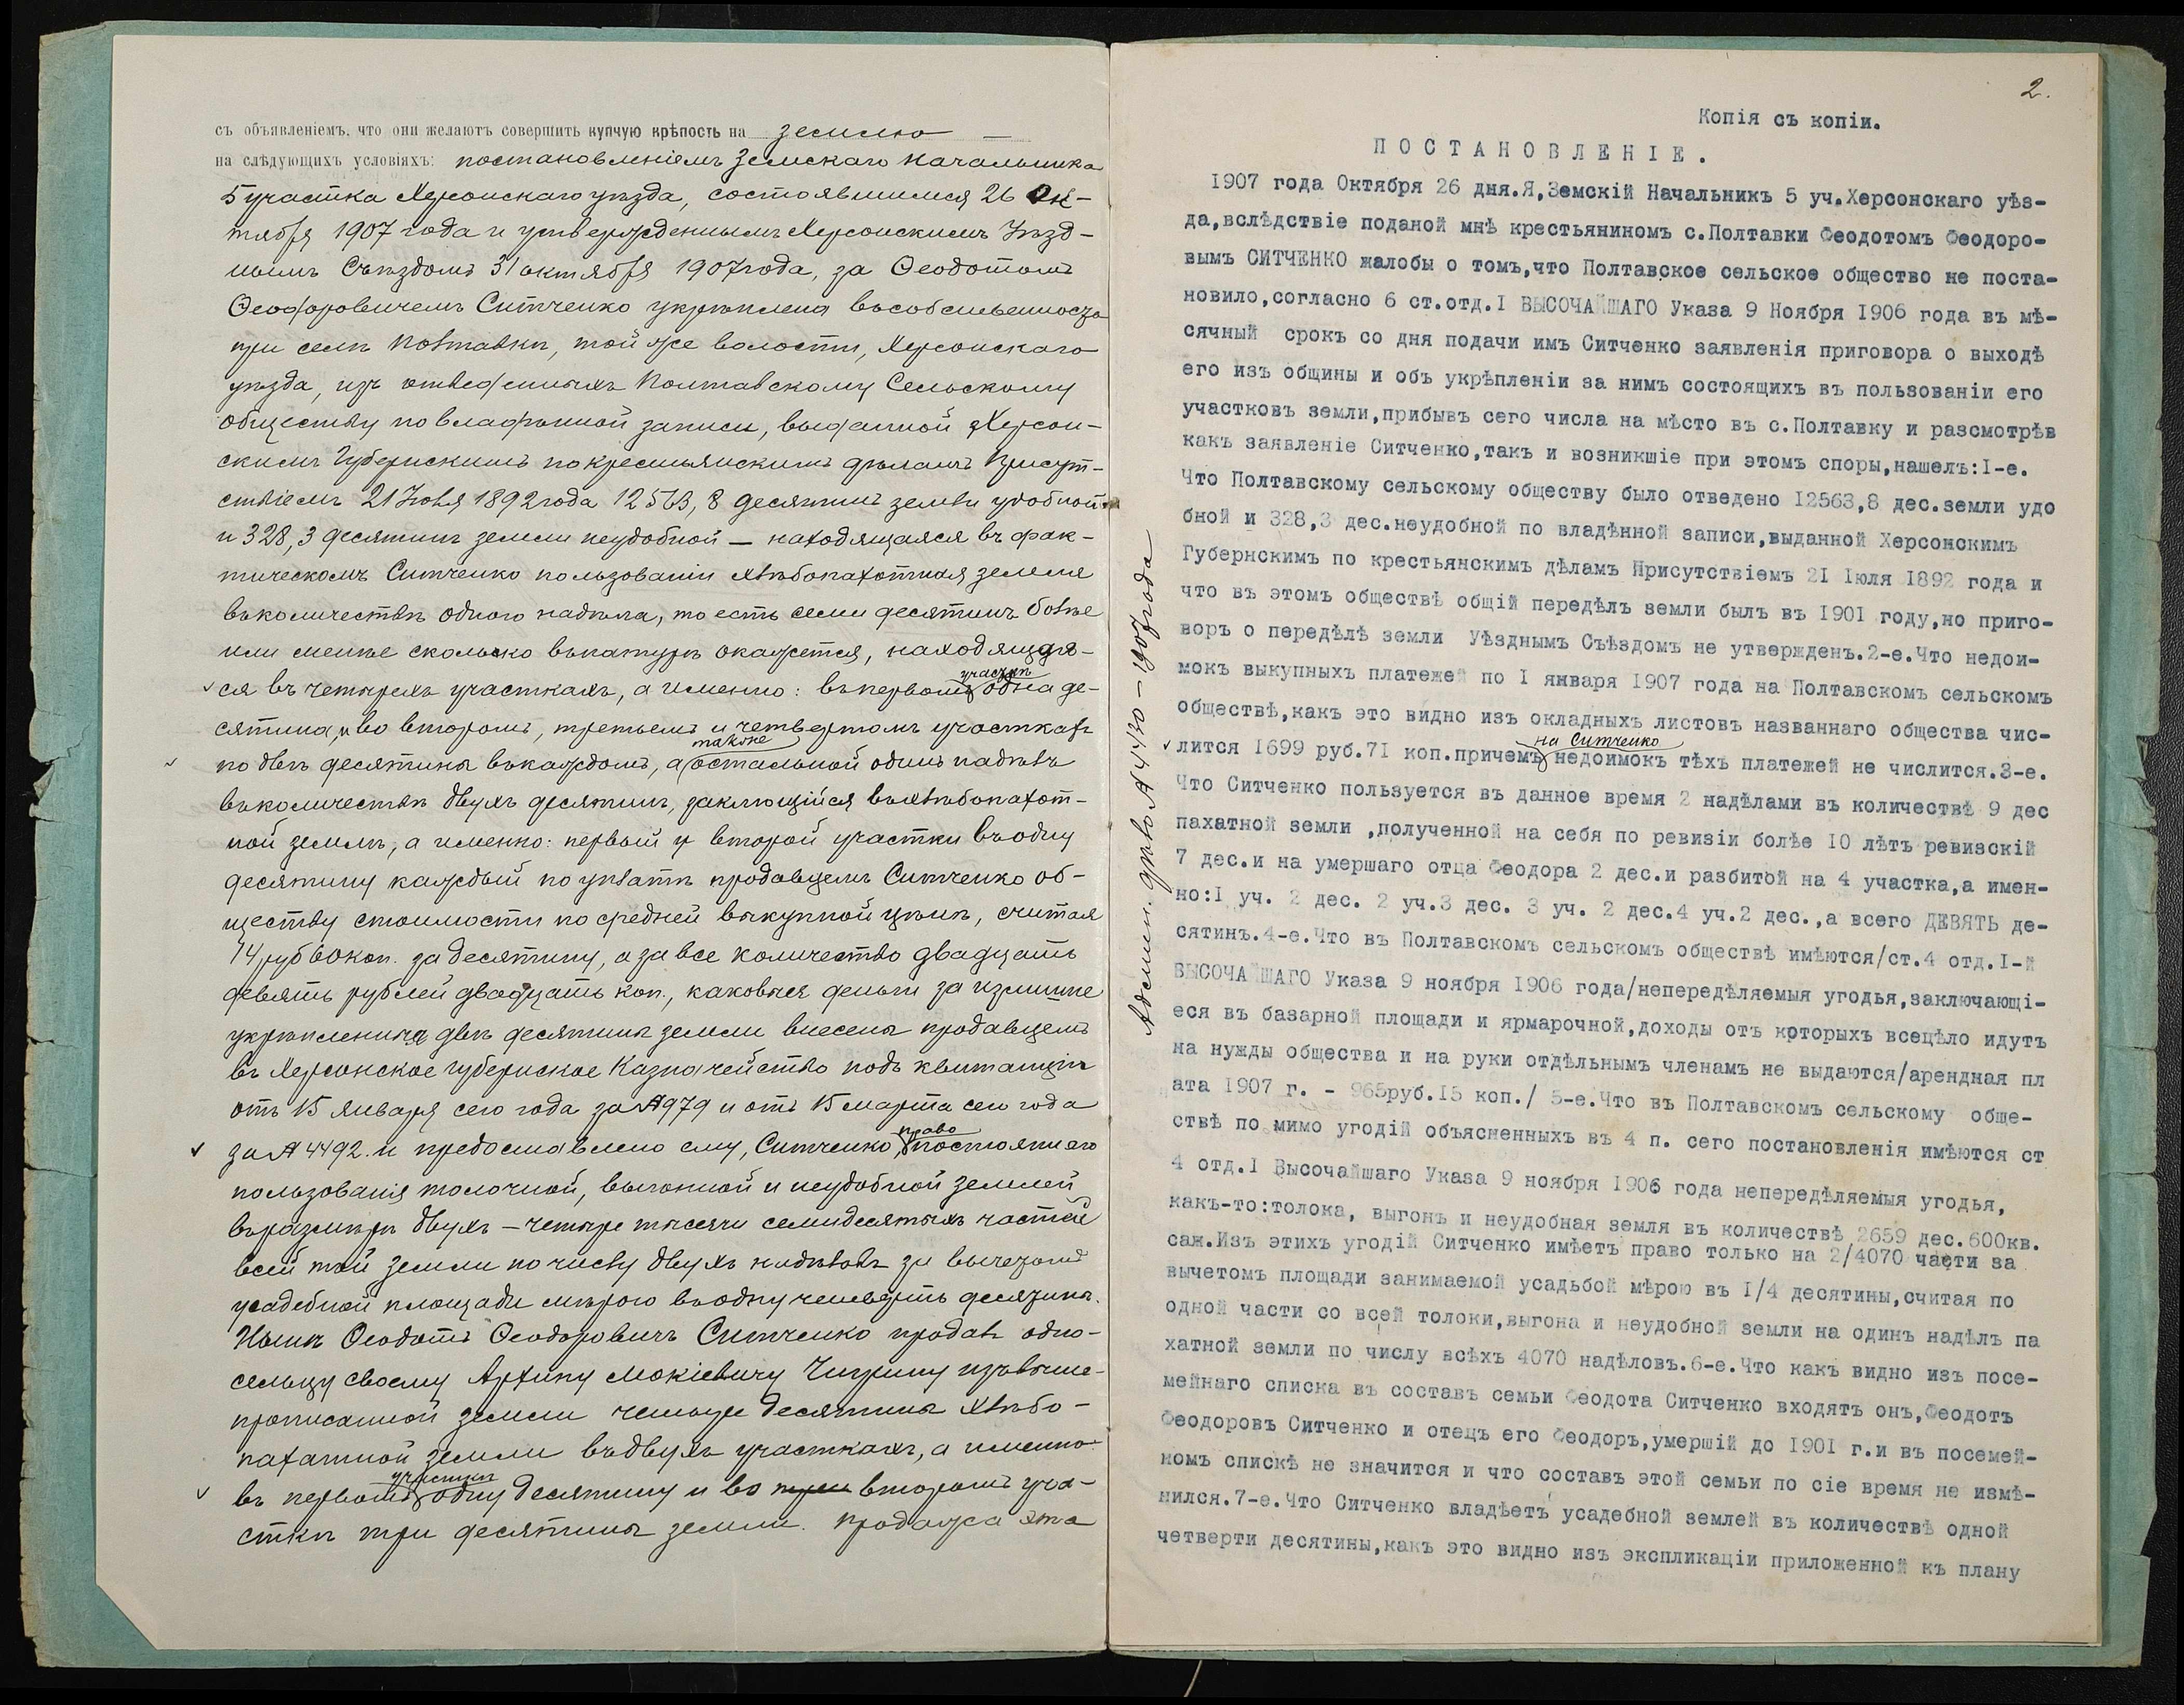 съ объявленіемъ, что они желаютъ совершить купчую крѣпость на землю —
на слѣдующихъ условіяхъ: постановленіемъ Земскаго Начальника
5 участка Херсонскаго уѣзда, состоявшимся 26 Ок-
тября 1907 года и утвержденнымъ Херсонскимъ Уѣзд-
нымъ Съѣздомъ 31 октября 1907 года, за Ѳеодотомъ
Ѳеодоровичемъ Ситченко укрѣплена въ собственность
при селѣ Полтавкѣ, той же волости, Херсонскаго
уѣзда, изъ отведенныхъ Полтавскому Сельскому
обществу по владѣнной записи, выданной Херсон-
скимъ Губернскимъ по крестьянскимъ дѣламъ Присут-
ствіемъ 21 Іюля 1892 года 12563,8 десятинъ земли удобной
и 328,3 десятинъ земли неудобной — находящаяся въ фак-
тическомъ Ситченко пользованіи хлѣбопахотная земля
въ количествѣ одного надѣла, то есть семи десятинъ болѣе
или менѣе сколько въ натурѣ окажется, находящая-
ся въ четырехъ участкахъ, а именно: въ первомъ участкѣ одна де-
сятина, и во второмъ, третьемъ и четвертомъ участкахъ
по двѣ десятины въ каждомъ, а также остальной одинъ надѣлъ
въ количествѣ двухъ десятинъ, заключющійся въ хлѣбопахот-
ной землѣ, а именно: первый и второй участки въ одну
десятину каждый по уплатѣ продавцемъ Ситченко об-
ществу стоимости по средней выкупной цѣнѣ, считая
14 руб 60 коп. за десятину, а за все количество двадцать
девять рублей двадцать коп., каковыя деньги за излишне
укрѣпленныя двѣ десятины земли внесены продавцемъ
въ Херсонское Губернское Казначейство подъ квитанціи
отъ 15 января сего года за № 979 и отъ 15 марта сего года
за № 4492. и предоставлено ему, Ситченко, право постояннаго
пользованія толочной, выгонной и неудобной землей
въ размѣрѣ двухъ — четыре тысячи семидесятыхъ частей
всей той земли по числу двухъ надѣловъ за вычетомъ
усадебной площади мѣрою въ одну четверть десятины.
Нынѣ Ѳеодотъ Ѳеодоровичъ Ситченко продалъ одно-
сельцу своему Архипу Мокіевичу Чигрину изъ выше-
прописанной земли четыре десятины хлѣбо-
пахатной земли въ двухъ участкахъ, а именно:
въ первомъ участкѣ одну десятину и во второмъ уча-
сткѣ три десятины земли. Продажа эта
Админ. дѣло № 4420 — 1907 года
2.
Копія съ копіи.
ПОСТАНОВЛЕНІЕ.
1907 года Октября 26 дня.Я,Земскій Начальникъ 5 уч.Херсонскаго уѣз-
да,вслѣдствіе поданой мнѣ крестьяниномъ с.Полтавки Феодотомъ Феодоро-
вымъ СИТЧЕНКО жалобы о томъ,что Полтавское сельское общество не поста-
новило,согласно 6 ст.отд.I ВЫСОЧАЙШАГО Указа 9 Ноября 1906 года въ мѣ-
сячный срокъ со дня подачи имъ Ситченко заявленія приговора о выходѣ
его изъ общины и объ укрѣпленіи за нимъ состоящихъ въ пользованіи его
участковъ земли,прибывъ сего числа на мѣсто въ с.Полтавку и разсмотрѣв
какъ заявленіе Ситченко,такъ и возникшіе при этомъ споры,нашелъ:I-е.
Что Полтавскому сельскому обществу было отведено 12563,8 дес.земли удо
бной и 328,3 дес.неудобной по владѣнной записи,выданной Херсонскимъ
Губернскимъ по крестьянскимъ дѣламъ Присутствіемъ 21 Іюля 1892 года и
что въ этомъ обществѣ общій передѣлъ земли былъ въ 1901 году,но приго-
воръ о передѣлѣ земли Уѣзднымъ Съѣздомъ не утвержденъ.2-е.Что недои-
мокъ выкупныхъ платежей по I января 1907 года на Полтавскомъ сельскомъ
обществѣ,какъ это видно изъ окладныхъ листовъ названнаго общества чис-
лится 1699 руб.71 коп.причемъ на Ситченко недоимокъ тѣхъ платежей не числится.3-е.
Что Ситченко пользуется въ данное время 2 надѣлами въ количествѣ 9 дес
пахатной земли ,полученной на себя по ревизіи болѣе 10 лѣтъ ревизскій
7 дес.и на умершаго отца Феодора 2 дес.и разбитой на 4 участка,а имен-
но:I уч. 2 дес. 2 уч.3 дес. 3 уч. 2 дес.4 уч.2 дес.,а всего ДЕВЯТЬ де-
сятинъ.4-е.Что въ Полтавскомъ сельскомъ обществѣ имѣются/ст.4 отд.I-й
ВЫСОЧАЙШАГО Указа 9 ноября 1906 года/непередѣляемыя угодья,заключающі-
еся въ базарной площади и ярмарочной,доходы отъ которыхъ всецѣло идутъ
на нужды общества и на руки отдѣльнымъ членамъ не выдаются/арендная пл
ата 1907 г. - 965руб.15 коп./ 5-е.Что въ Полтавскомъ сельскому обще-
ствѣ по мимо угодій объясненныхъ въ 4 п. сего постановленія имѣются ст
4 отд.I Высочайшаго Указа 9 ноября 1906 года непередѣляемыя угодья,
какъ-то:толока, выгонъ и неудобная земля въ количествѣ 2659 дес.600кв.
саж.Изъ этихъ угодій Ситченко имѣетъ право только на 2/4070 части за
вычетомъ площади занимаемой усадьбой мѣрою въ I/4 десятины,считая по
одной части со всей толоки,выгона и неудобной земли на одинъ надѣлъ па
хатной земли по числу всѣхъ 4070 надѣловъ.6-е.Что какъ видно изъ посе-
мейнаго списка въ составъ семьи Феодота Ситченко входятъ онъ,Феодотъ
Феодоровъ Ситченко и отецъ его Феодоръ,умершій до 1901 г.и въ посемей-
номъ спискѣ не значится и что составъ этой семьи по сіе время не измѣ-
нился.7-е.Что Ситченко владѣетъ усадебной землей въ количествѣ одной
четверти десятины,какъ это видно изъ экспликаціи приложенной къ плану